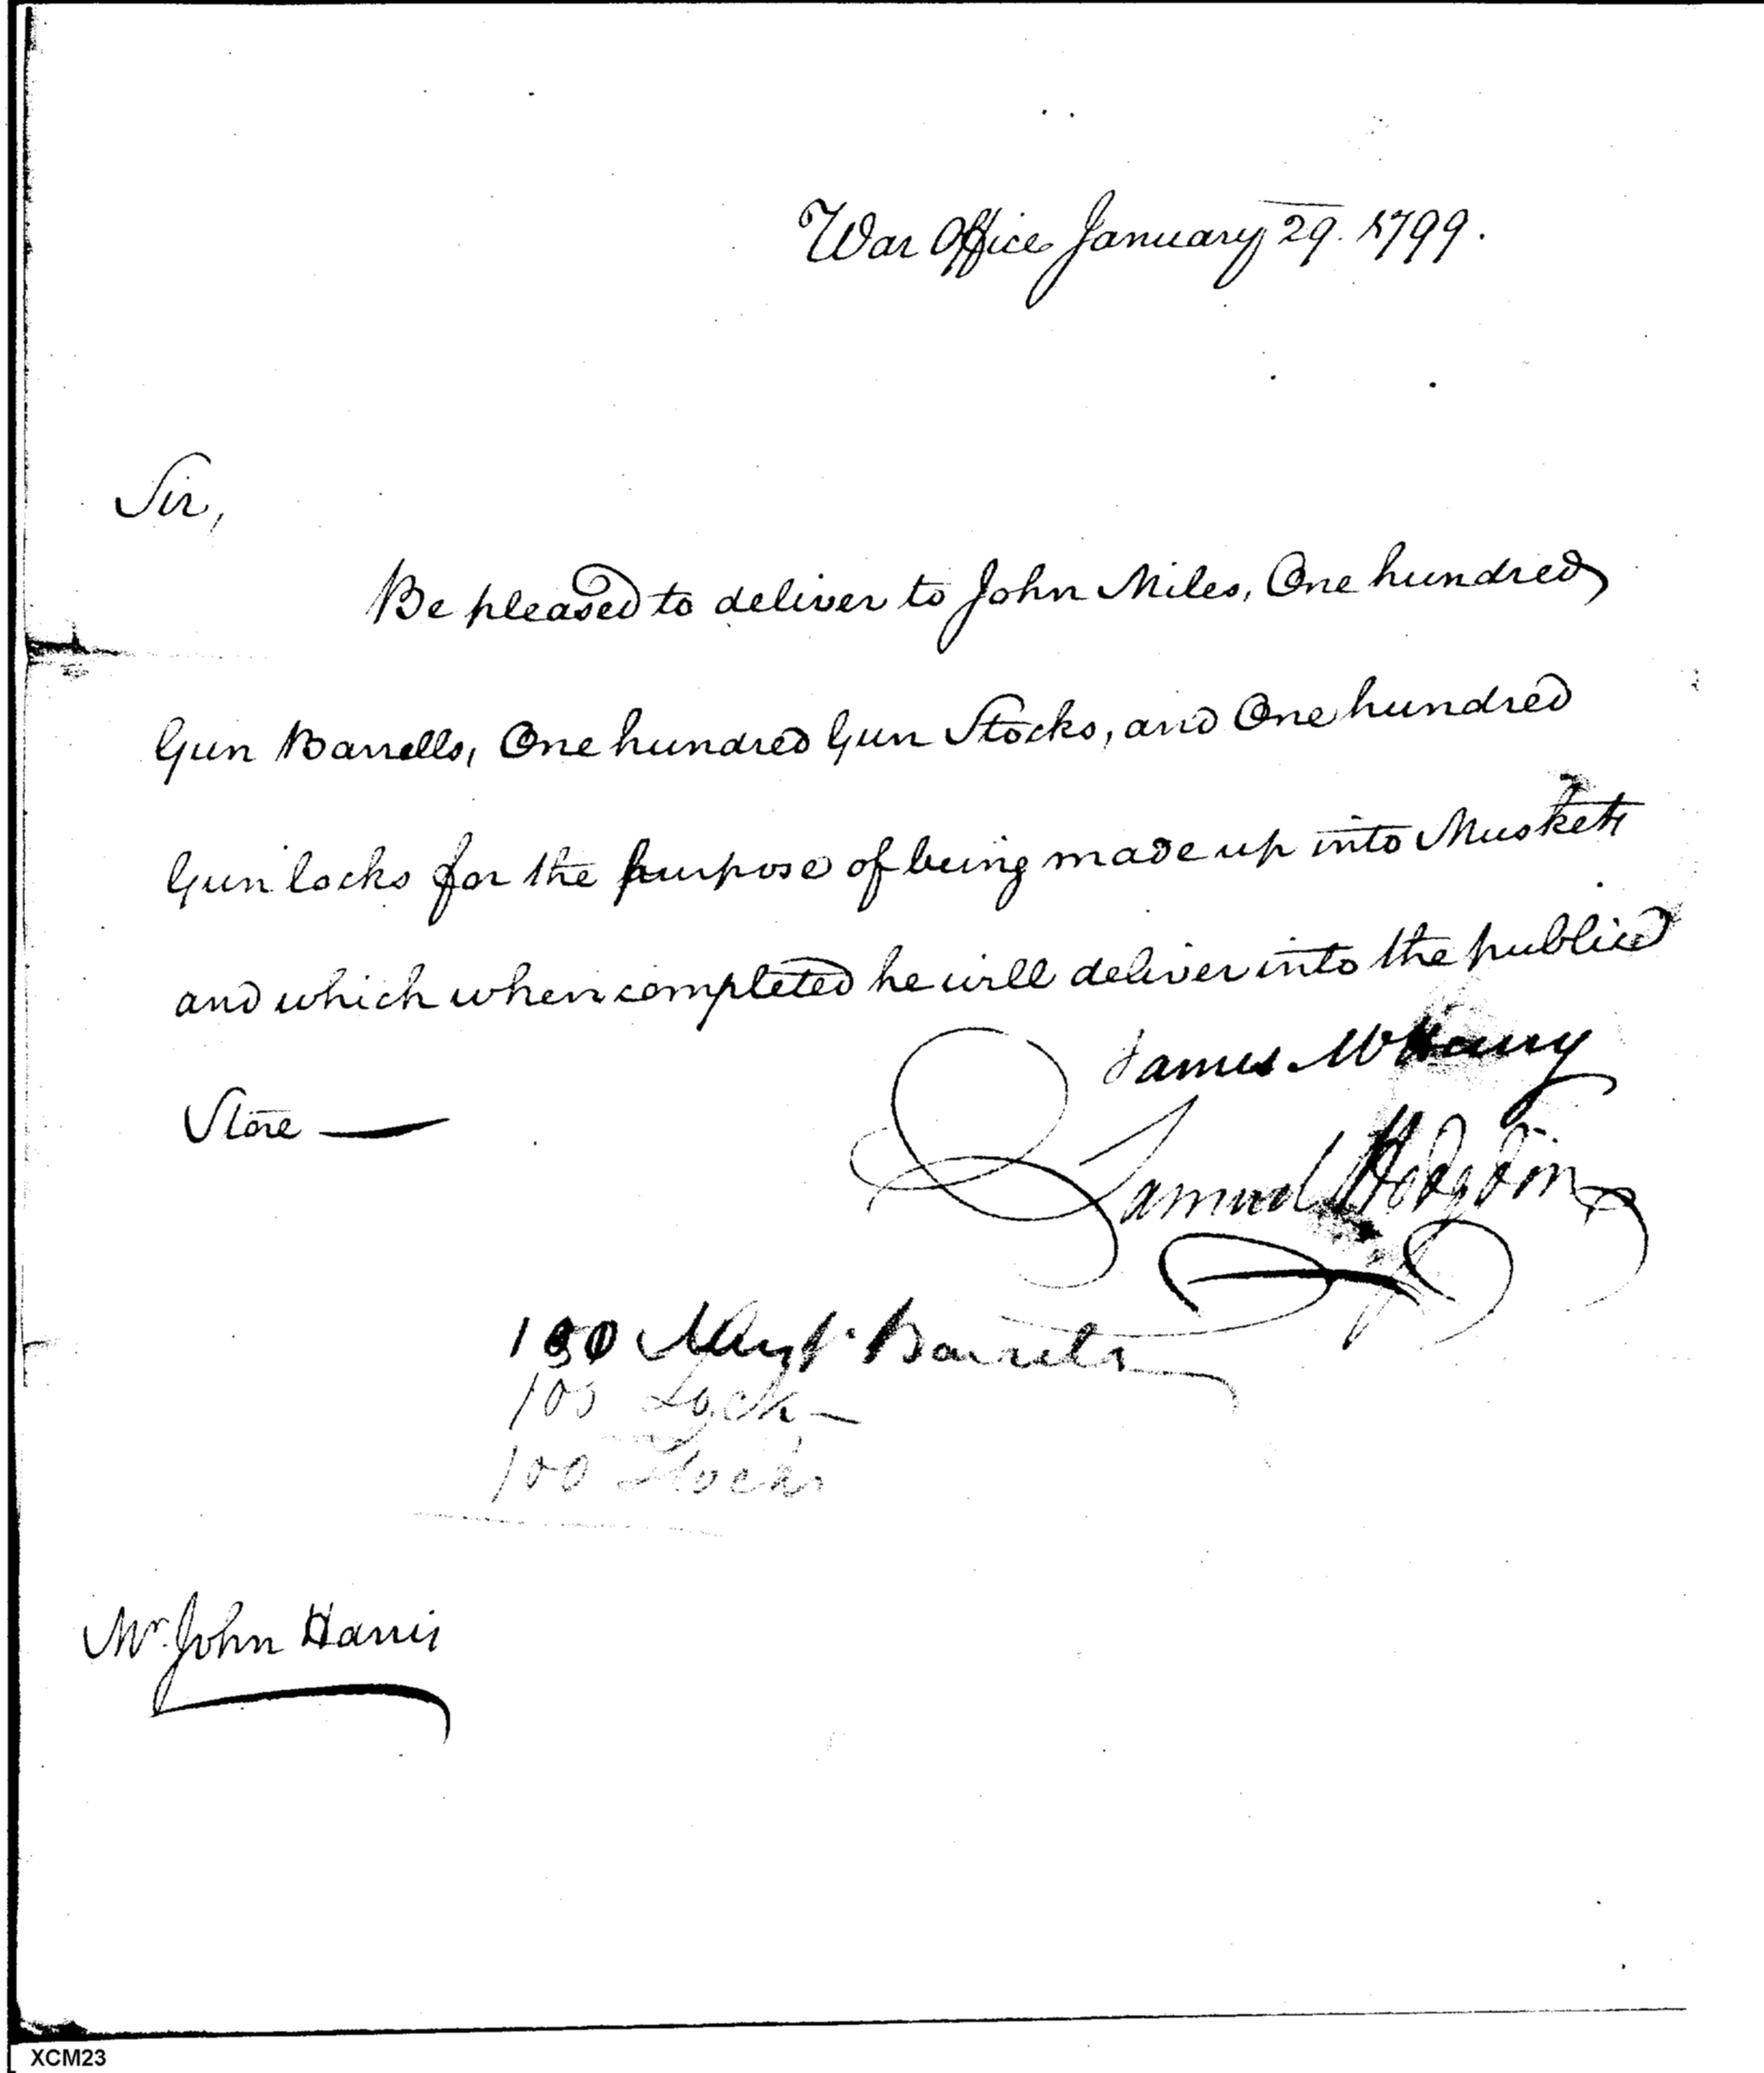 War Office January 29. 1799.
Sir,
Be pleased to deliver to John Miles, One hundred
Gun Barrells, One hundred Gun Stocks, and One hundred
Gun locks for the purpose of being made up into Muskets
and which when completed he will deliver into the public
Store —
James McHenry
Samuel Hodgdon
100 Barrels
100 Locks
100 Stocks
Mr. John Harris
XCM23